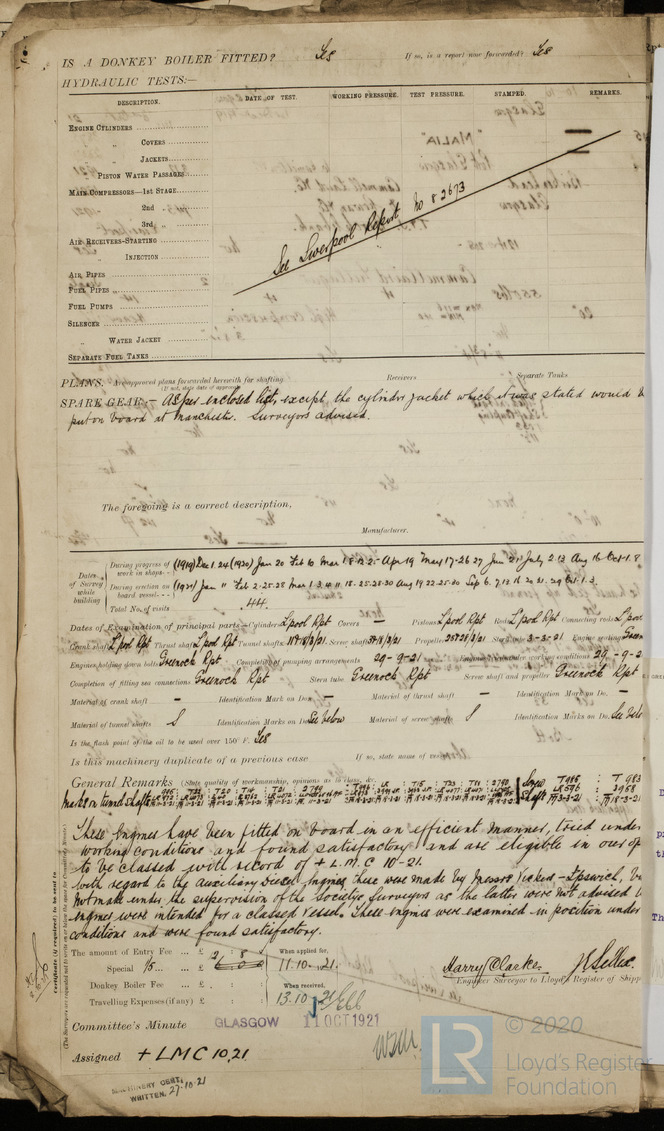 IS A DONKEY BOILER FITTED? Yes If so, is a report now forwarded? Yes
HYDRAULIC TESTS:—
DESCRIPTION. DATE OF TEST. WORKING PRESSURE. TEST PRESSURE. STAMPED. REMARKS.
ENGINE CYLINDERS
„ COVERS
„ JACKETS
„ PISTON WATER PASSAGES
MAIN COMPRESSORS—1ST STAGE
2nd „
3rd „
AIR RECEIVERS—STARTING
„ INJECTION
AIR PIPES
FUEL PIPES
FUEL PUMPS
SILENCER
„ WATER JACKET
SEPARATE FUEL TANKS
See Liverpool Report No 82673
PLANS. Are approved plans forwarded herewith for shafting Receivers Separate Tanks
(If not, state date of approval)
SPARE GEAR:— As per enclosed list, except the cylinder jacket which it was stated would
put on board at Manchester. Surveyors advised.
The foregoing is a correct description,
Manufacturer.
Dates of Survey while building
During progress of work in shops - - (1919) Dec 1. 24 (1920) Jan 20 Feb 10 Mar Apr 19 May 17-26 27 Jun July 2.13 Aug 16 Oct 1.8
During erection on board vessel - - (1921) Jan 11 Feb 2.25.28 Mar 1.3.4.11.18.25.28.30 Aug 19.22.25.30 Sep 6.7.12.16.20.21.29 Oct 1.3.
Total No. of visits 44.
Dates of Examination of principal parts—Cylinders L'pool Rpt Covers — Pistons L'pool Rpt Rods L'pool Rpt Connecting rods L'pool
Crank shaft L'pool Rpt Thrust shaft L'pool Rpt Tunnel shafts Screw shaft Propeller Stern tube 3-3-21 Engine seating Green
Engines holding down bolts Greenock Rpt Completion of pumping arrangements 29-9-21 Engines tried under working conditions 29-9-2
Completion of fitting sea connections Greenock Rpt Stern tube Greenock Rpt Screw shaft and propeller Greenock Rpt
Material of crank shaft — Identification Mark on Do. — Material of thrust shaft — Identification Mark on Do. —
Material of tunnel shafts S Identification Marks on Do. See below Material of screw shafts S Identification Marks on Do. See below
Is the flash point of the oil to be used over 150° F. Yes
Is this machinery duplicate of a previous case If so, state name of vessel
General Remarks (State quality of workmanship, opinions as to class, &c.
Marks on tunnel shafts
Screw Shaft
These Engines have been fitted on board in an efficient manner, tried under
working conditions and found satisfactory and are eligible in our op
to be classed with record of + L.M.C 10-21.
With regard to the Auxiliary Diesel Engines these were made by Messrs Vickers - Ipswich,
not made under the supervision of the Societys Surveyors as the latter were not advised
engines were intended for a classed vessel. These engines were examined in position under
conditions and were found satisfactory.
The amount of Entry Fee ... £ When applied for,
Special ... £ 11.10.21.
Donkey Boiler Fee ... £ When received,
Travelling Expenses (if any) £ 13.10.21
Harry Clarke.
Engineer Surveyor to Lloyd's Register of Shipp
Committee's Minute GLASGOW 11 OCT 1921
Assigned + LMC 10,21
MACHINERY CERT.
WRITTEN. 27-10-21
Certificate (if required) to be sent to
(The Surveyors are requested not to write on or below the space for Committee's Minute.)
LR
© 2020
Lloyd's Register
Foundation